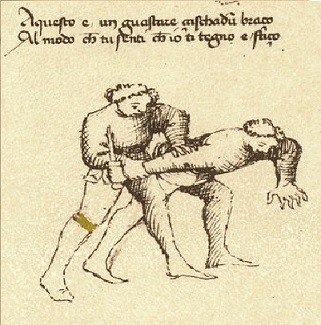 Aquesto e un guastare cischadũ braço
Al modo ch tu senti ch io ti tegno e striço